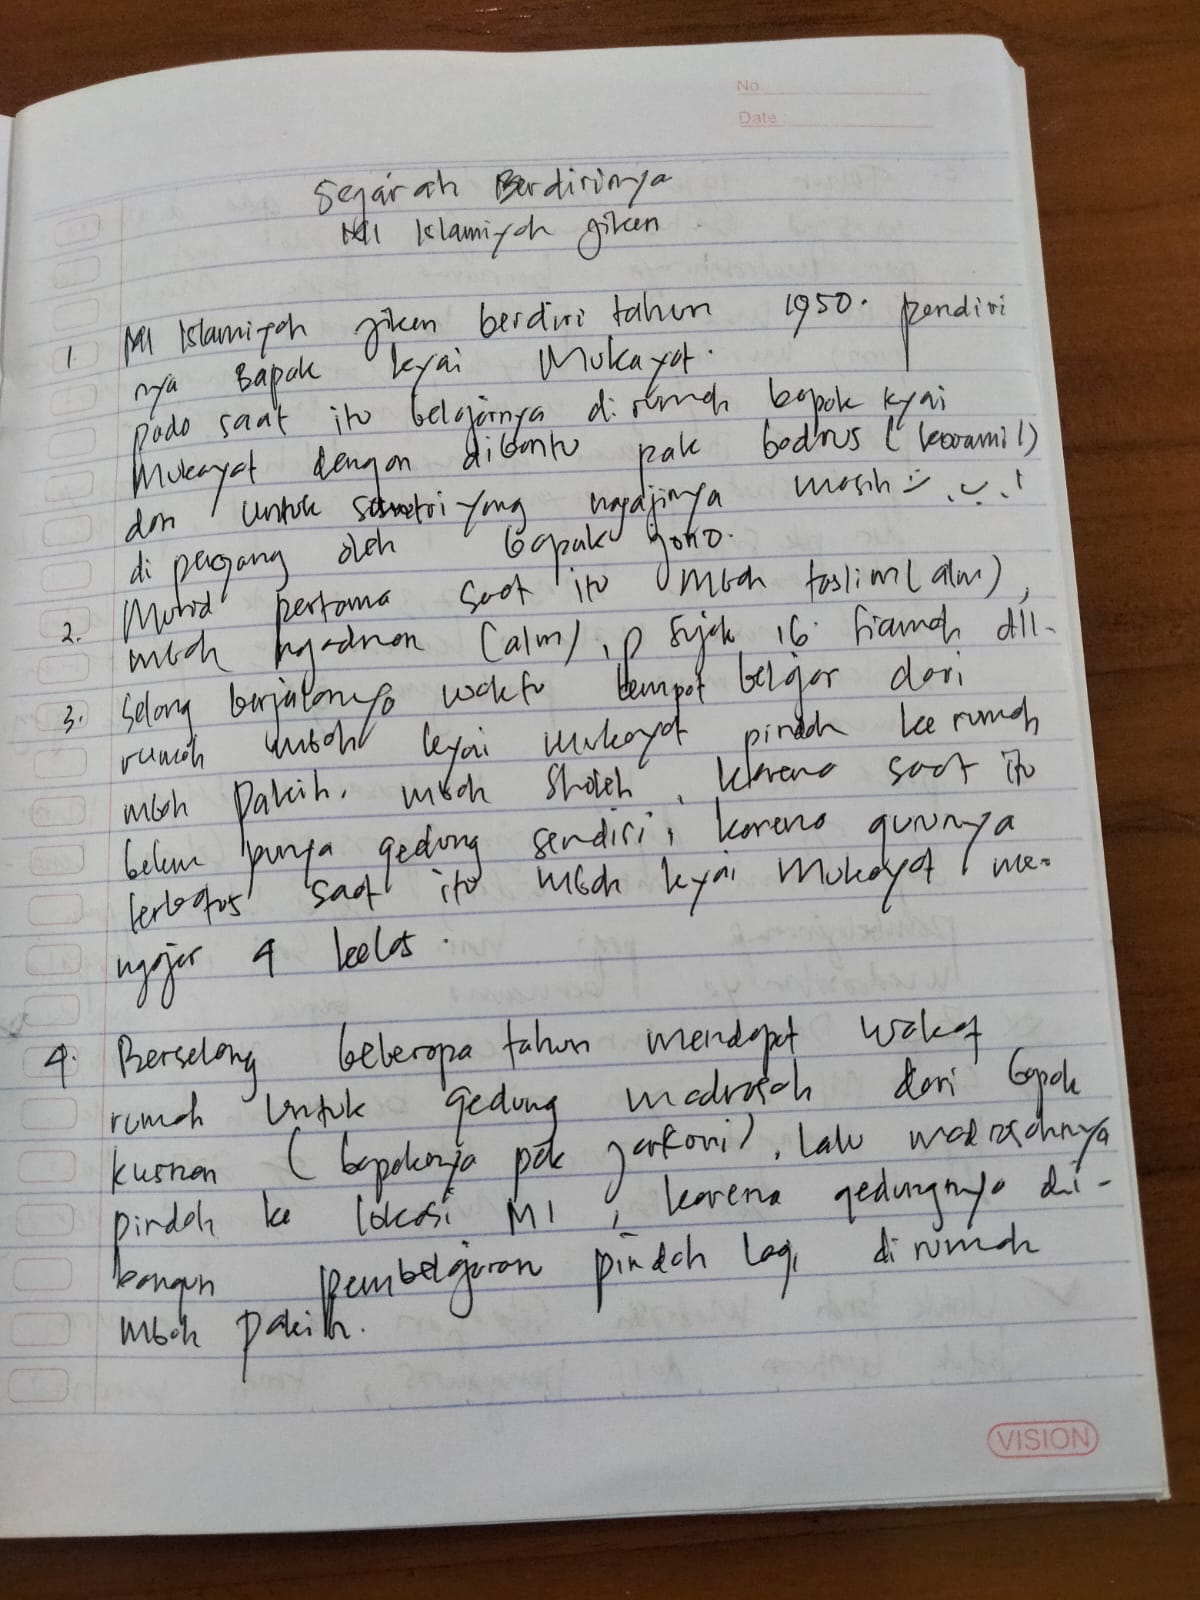 No.
Date :
Sejarah Berdirinya
MI Islamiyah Jiken
1 MI Islamiyah Jiken berdiri tahun 1950. pendiri
nya Bapak kyai Mukayat.
pada saat itu belajarnya di rumah bapak kyai
Mukayat dengan dibantu pak badrus (koramil)
dan untuk santri yang ngajinya masih
di pegang oleh bapak
2. Murid pertama saat itu Mbah taslim (alm),
mbah ngadman (alm), p 16. dll.
3. Selang berjalannya waktu tempat belajar dari
rumah mbah kyai Mukayat pindah ke rumah
mbah Pakih, mbah Sholeh, karena saat itu
belum punya gedung sendiri, karena gurunya
terbatas saat itu mbah kyai Mukayat me-
ngajar 4 kelas.
4. Berselang beberapa tahun mendapat wakaf
rumah untuk gedung madrasah dari bapak
Kusnan (bapaknya pak jarkoni), lalu madrasahnya
pindah ke lokasi MI, karena gedungnya di-
bangun pembelajaran pindah lagi di rumah
mbah Pakih.
VISION